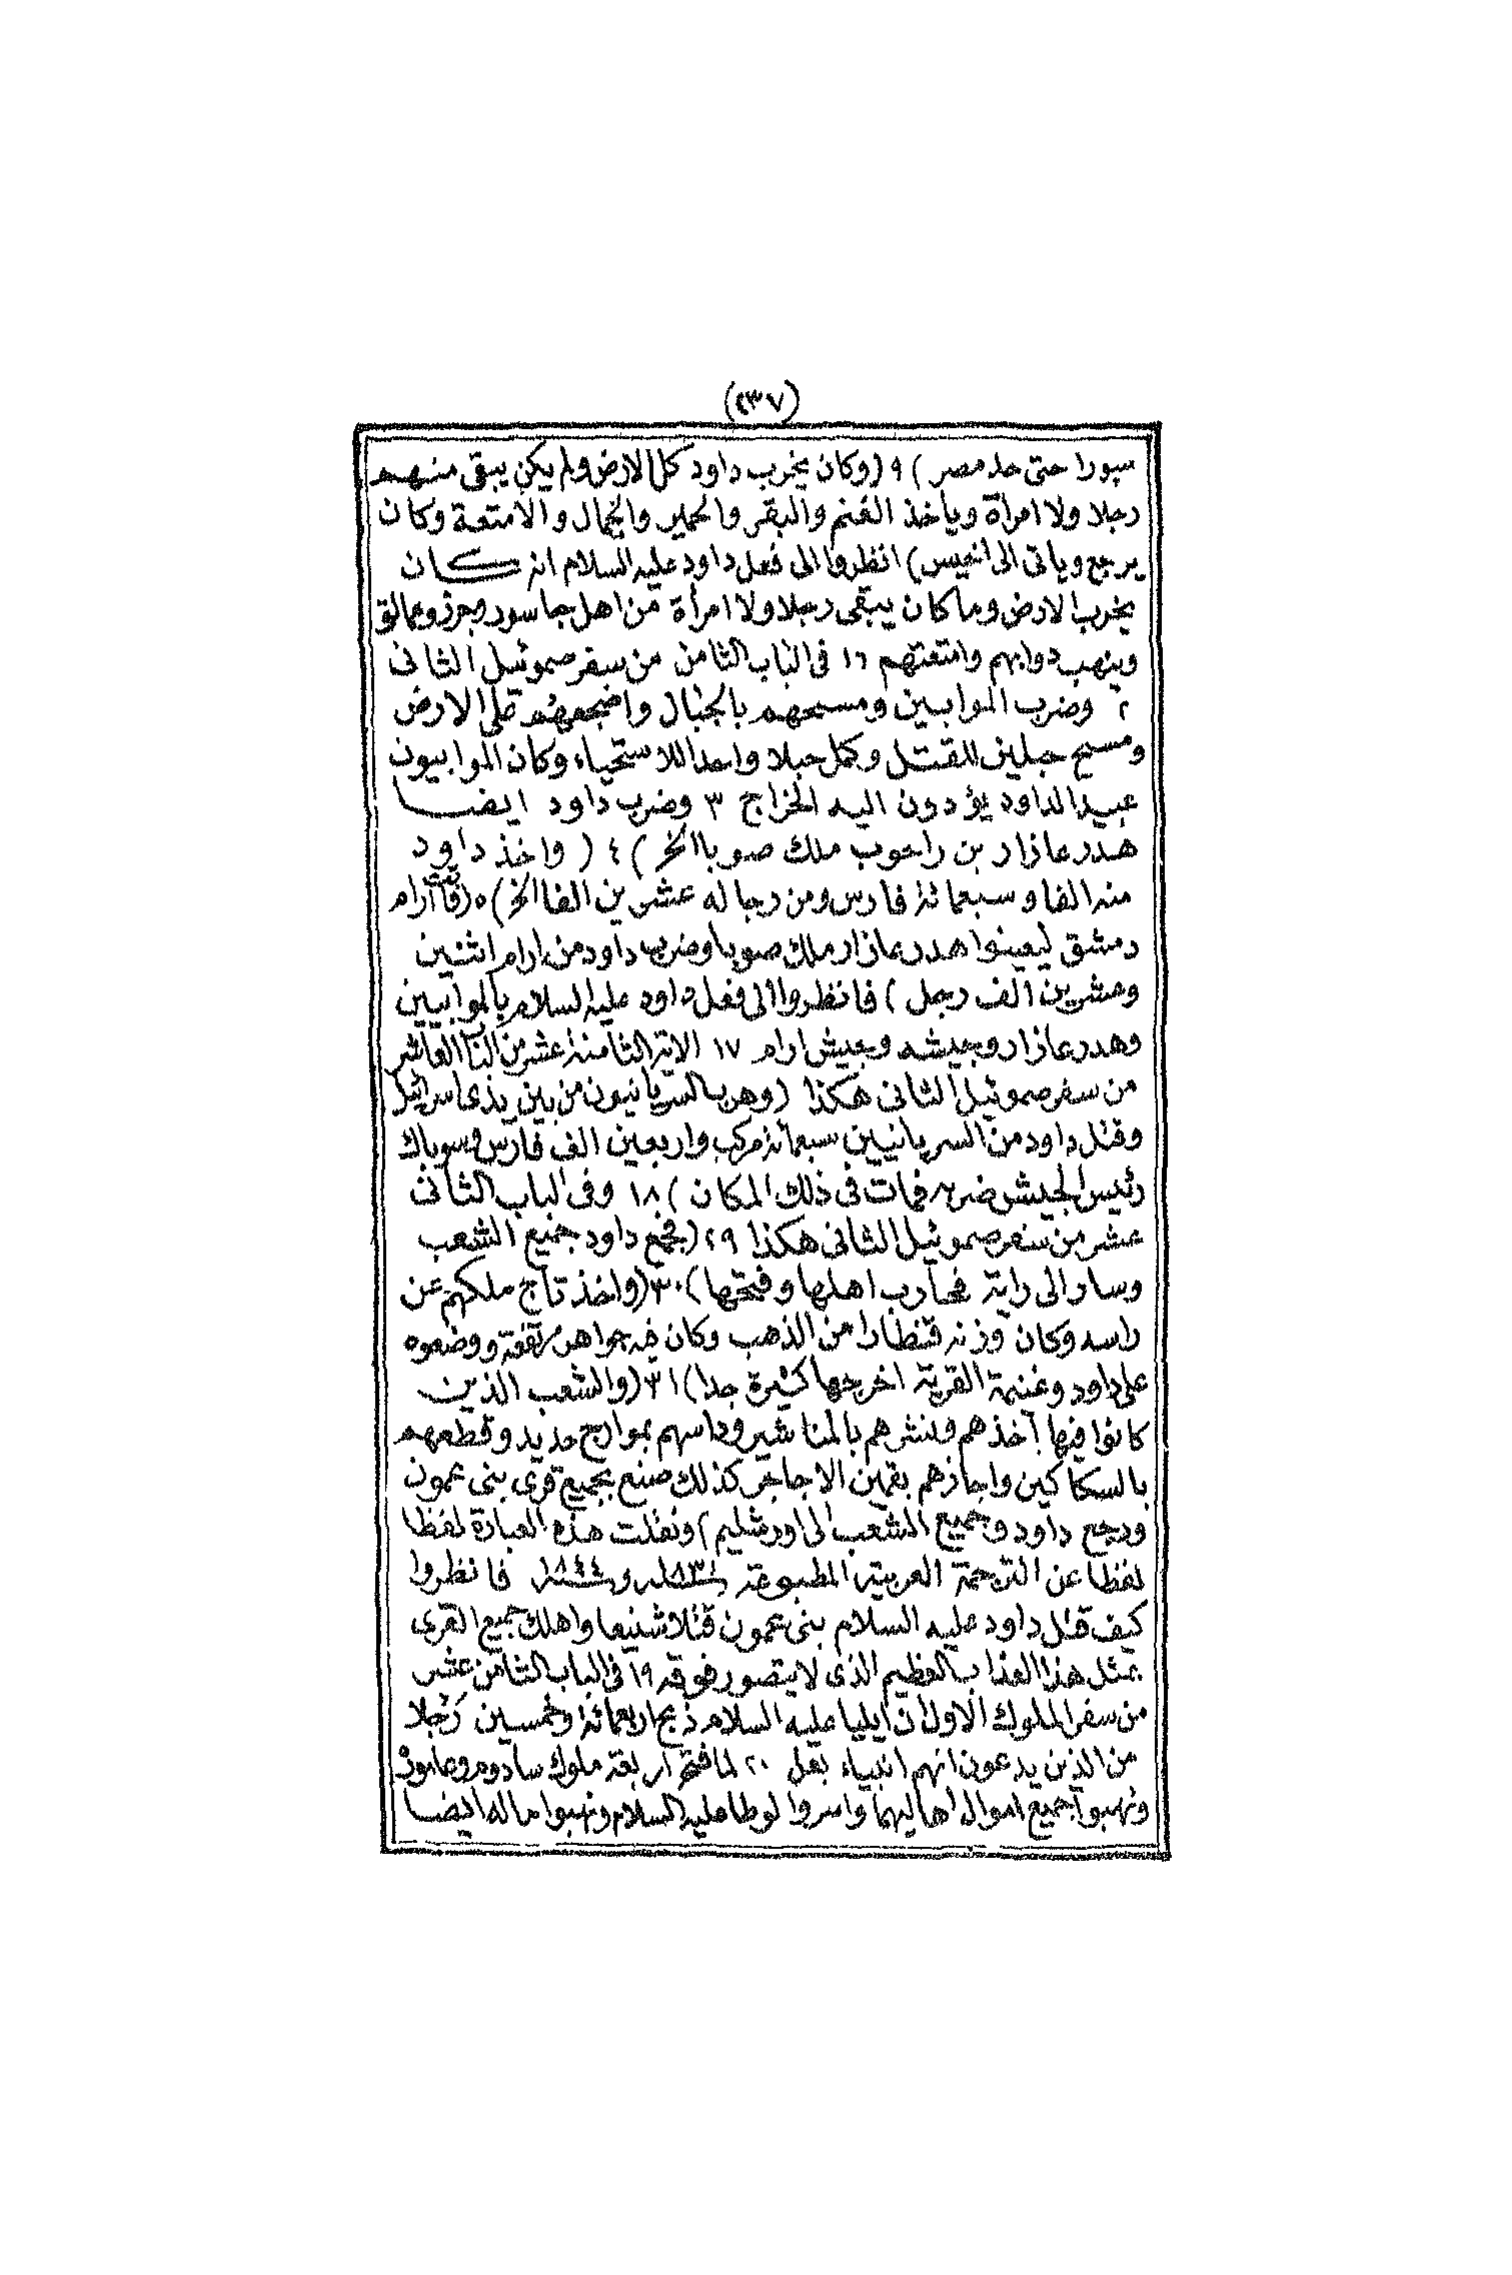 (٢٣٧)
سورا حتى حد مصر ) ٩ ( وكان يخرب داود كل الارض ولم يكن يبقى منهم
رجلا ولا امرأة وياخذ الغنم والبقر والحمير والجمال والامتعة وكان
يرجع وياتى الى اخيس ) انظروا الى فعل داود عليه السلام انه كان
يخرب الارض وما كان يبقى رجلا ولا امرأة من اهل جاسور وجرز وعمالق
وينهب دوابهم وامتعتهم ١٦ فى الباب الثامن من سفر صموئيل الثانى
٢ وضرب الموابيين ومسحهم بالحبال واضجعهم على الارض
ومسح حبلين للقتل وكمل حبلا واحدا للاستحياء وكان الموابيون
عبيدا لداود يؤدون اليه الخراج ٣ وضرب داود ايضا
هدر عازار بن راحوب ملك صوبا الخ ) ٤ ( واخذ داود
منه الفا وسبعمائة فارس ومن رجاله عشرين الفا الخ ) ٥ ( فاتت ارام
دمشق ليعينوا هدر عازار ملك صوبا وضرب داود من ارام اثنين
وعشرين الف رجل ) فانظروا الى فعل داود عليه السلام بالموابيين
وهدر عازار وجيشه وجيش ارام ١٧ الاية الثامنة عشر من الباب العاشر
من سفر صموئيل الثانى هكذا ( وهرب السريانيون من بين يدى اسرائيل
وقتل داود من السريانيين سبعمائة مركب واربعين الف فارس وسوباك
رئيس الجيش ضربه فمات فى ذلك المكان ) ١٨ وفى الباب الثانى
عشر من سفر صموئيل الثانى هكذا ٢٩ ( فجمع داود جميع الشعب
وسار الى راية فحارب اهلها وفتحها ) ٣٠ ( واخذ تاج ملكهم عن
راسه وكان وزنه قنطارا من الذهب وكان فيه جواهر مرتفعة ووضعوه
على داود وغنيمة القرية اخرجها كثيرة جدا ) ٣١ ( والشعب الذين
كانوا فيها أخذهم ونشرهم بالمناشير وداسهم بموارج حديد وقطعهم
بالسكاكين واجازهم بقمين الاجاجر كذلك صنع بجميع قرى بنى عمون
ورجع داود وجميع الشعب الى اورشليم ) ونقلت هذه العبارة لفظا
لفظا عن الترجمة العربية المطبوعة سنة ١٨٣١ وسنة ١٨٤٤ فانظروا
كيف قتل داود عليه السلام بنى عمون قتلا شنيعا واهلك جميع القرى
بمثل هذا العذاب العظيم الذى لا يتصور فوقه ١٩ فى الباب الثامن عشر
من سفر الملوك الاول ان ايليا عليه السلام ذبح اربعمائة وخمسين رجلا
من الذين يدعون انهم انبياء بعل ٢٠ لما فتح اربعة ملوك سادوم وعامورة
ونهبوا جميع اموال اهاليهما واسروا لوطا عليه السلام ونهبوا ماله ايضا